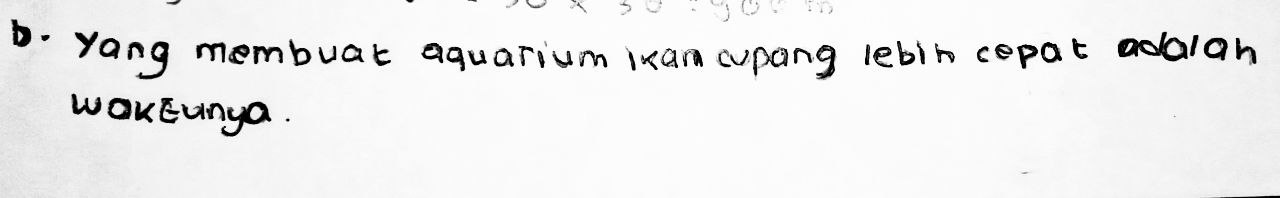 b. Yang membuat aquarium ikan cupang lebih cepat adalah
waktunya.